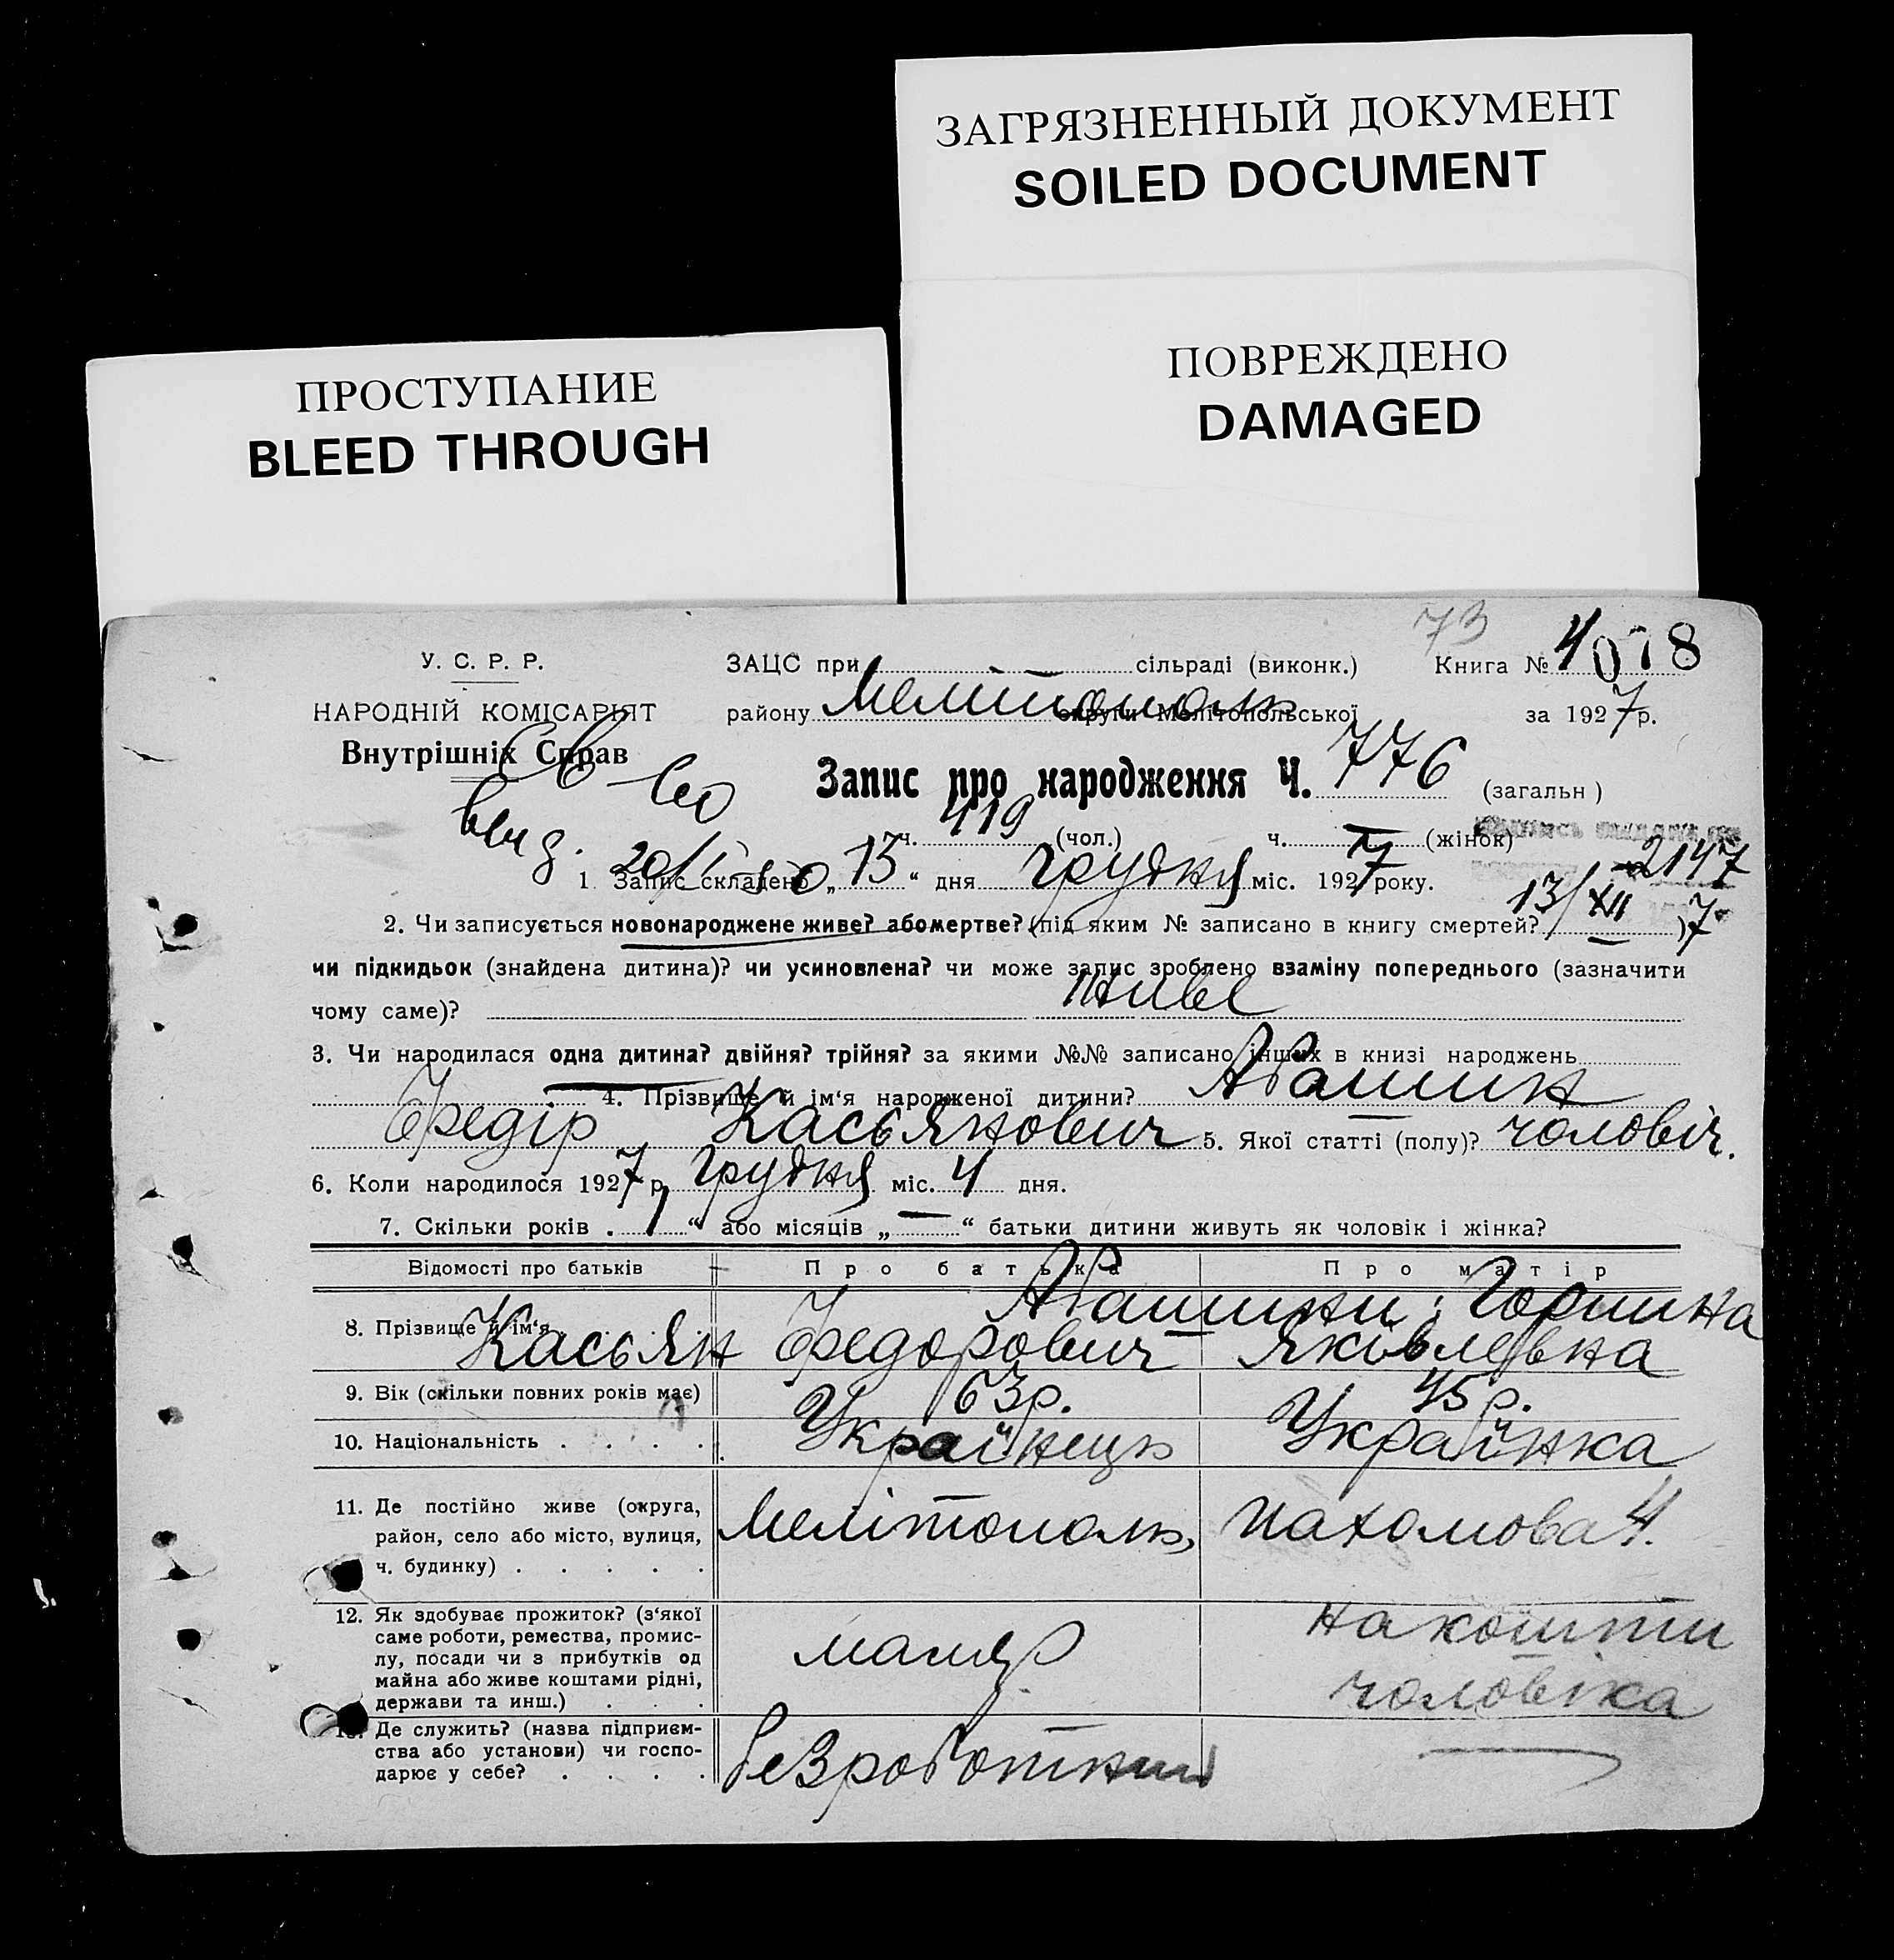 ЗАГРЯЗНЕННЫЙ ДОКУМЕНТ
SOILED DOCUMENT
ПОВРЕЖДЕНО
DAMAGED
ПРОСТУПАНИЕ
BLEED THROUGH
73
У. С. Р. Р.
ЗАЦС при сільраді (виконк.) Книга № 4078
НАРОДНІЙ КОМІСАРІЯТ
району Мелітополь округи Мелітопольської за 1927р.
Внутрішніх Справ
Св-во
Запис про народження Ч. 776 (загальн )
выд. 20/I-50
ч. 419 (чол.) ч. — (жінок)
2147
1 Запис складено „13“ дня Грудня міс. 1927 року.
13/XII 7
2. Чи записується новонароджене живе? або мертве? (під яким № записано в книгу смертей? — )
чи підкидьок (знайдена дитина)? чи усиновлена? чи може запис зроблено взаміну попереднього (зазначити
чому саме)? живе
3. Чи народилася одна дитина? двійня? трійня? за якими №№ записано інших в книзі народжень
4. Прізвище й ім‘я народженої дитини? Абашин
Федір Касьянович 5. Якої статті (полу)? чоловіч.
6. Коли народилося 1927 р. Грудня міс. 4 дня.
7. Скільки років „1“ або місяців „—“ батьки дитини живуть як чоловік і жінка?
Відомості про батьків Про батька Про матір
8. Прізвище й ім‘я Абашини:
Касьян Федорович Яковлевна
9. Вік (скільки повних років має) 63р. 45р.
10. Національність . . . . Українець Українка
11. Де постійно живе (округа,
район, село або місто, вулиця,
ч. будинку) . . . . .
Мелітополь, Пахомова 4.
12. Як здобуває прожиток? (з‘якої
саме роботи, ремества, промис-
лу, посади чи з прибутків од
майна або живе коштами рідні,
держави та инш.) . . .
маляр
на кошти
чоловіка
13. Де служить? (назва підприєм-
ства або установи) чи госпо-
дарює у себе? . . . .
безроботний
—